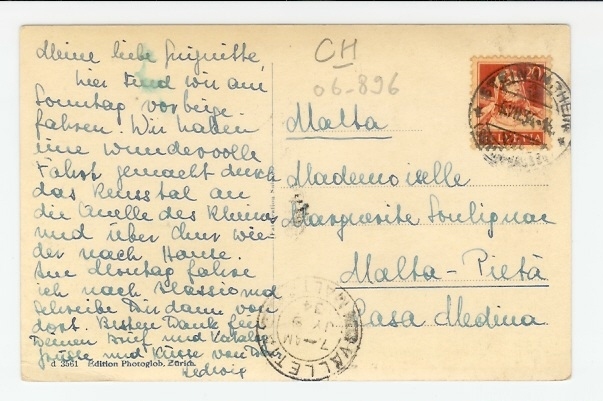 Meine liebe Guignitte,
hier sind wir am
Sonntag vorbeige-
fahren. Wir haben
eine wundervolle
Fahrt gemacht durch
das Reusstal an
die Quelle des Rheines
und über Chur wie-
der nach Hause.
Am Montag fahre
ich nach und
schreibe Dir dann von
dort. Besten Dank für
Deinen Brief und
Grüsse und Küsse von
Hedwig
d 3561 Edition Photoglob, Zürich.
CH
06-896
HELVETIA
Malta
Mademoiselle
Marguerite Soulignac
Malta - Pietà
Casa Medina
VALLETTA
MALTA
7 - AM
JY 9
34